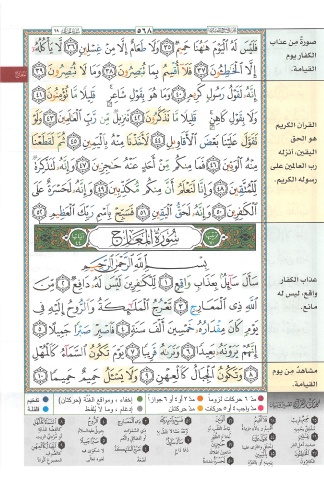 ٥٦٨
فَلَيْسَ لَهُ ٱلْيَوْمَ هَٰهُنَا حَمِيمٌ ٣٥ وَلَا طَعَامٌ إِلَّا مِنْ غِسْلِينٍ ٣٦ لَّا يَأْكُلُهُۥٓ
إِلَّا ٱلْخَٰطِـُٔونَ ٣٧ فَلَآ أُقْسِمُ بِمَا تُبْصِرُونَ ٣٨ وَمَا لَا تُبْصِرُونَ ٣٩
إِنَّهُۥ لَقَوْلُ رَسُولٍ كَرِيمٍ ٤٠ وَمَا هُوَ بِقَوْلِ شَاعِرٍ ۚ قَلِيلًا مَّا تُؤْمِنُونَ ٤١
وَلَا بِقَوْلِ كَاهِنٍ ۚ قَلِيلًا مَّا تَذَكَّرُونَ ٤٢ تَنزِيلٌ مِّن رَّبِّ ٱلْعَٰلَمِينَ ٤٣ وَلَوْ
تَقَوَّلَ عَلَيْنَا بَعْضَ ٱلْأَقَاوِيلِ ٤٤ لَأَخَذْنَا مِنْهُ بِٱلْيَمِينِ ٤٥ ثُمَّ لَقَطَعْنَا
مِنْهُ ٱلْوَتِينَ ٤٦ فَمَا مِنكُم مِّنْ أَحَدٍ عَنْهُ حَٰجِزِينَ ٤٧ وَإِنَّهُۥ لَتَذْكِرَةٌ
لِّلْمُتَّقِينَ ٤٨ وَإِنَّا لَنَعْلَمُ أَنَّ مِنكُم مُّكَذِّبِينَ ٤٩ وَإِنَّهُۥ لَحَسْرَةٌ عَلَى
ٱلْكَٰفِرِينَ ٥٠ وَإِنَّهُۥ لَحَقُّ ٱلْيَقِينِ ٥١ فَسَبِّحْ بِٱسْمِ رَبِّكَ ٱلْعَظِيمِ ٥٢
سُورَةُ المَعَارِجِ
بِسْمِ ٱللَّهِ ٱلرَّحْمَٰنِ ٱلرَّحِيمِ
سَأَلَ سَآئِلٌۢ بِعَذَابٍ وَاقِعٍ ١ لِّلْكَٰفِرِينَ لَيْسَ لَهُۥ دَافِعٌ ٢ مِّنَ
ٱللَّهِ ذِى ٱلْمَعَارِجِ ٣ تَعْرُجُ ٱلْمَلَٰٓئِكَةُ وَٱلرُّوحُ إِلَيْهِ فِى
يَوْمٍ كَانَ مِقْدَارُهُۥ خَمْسِينَ أَلْفَ سَنَةٍ ٤ فَٱصْبِرْ صَبْرًا جَمِيلًا ٥
إِنَّهُمْ يَرَوْنَهُۥ بَعِيدًا ٦ وَنَرَىٰهُ قَرِيبًا ٧ يَوْمَ تَكُونُ ٱلسَّمَآءُ كَٱلْمُهْلِ
٨ وَتَكُونُ ٱلْجِبَالُ كَٱلْعِهْنِ ٩ وَلَا يَسْـَٔلُ حَمِيمٌ حَمِيمًا ١٠
صورة من عذاب
الكفار يوم
القيامة.
القرآن الكريم
هو الحق
اليقين، أنزله
رب العالمين على
رسوله الكريم.
عذاب الكفار
واقع، ليس له
مانع.
مشاهد من يوم
القيامة.
مدّ ٦ حركات لزوماً
مدّ ٢ أو ٤ أو ٦ جوازاً
إخفاء، ومواقع الغُنَّة (حركتان)
تفخيم
مدّ واجب ٤ أو ٥ حركات
مدّ حركتان
إدغام، وما لا يُلفظ
قلقلة